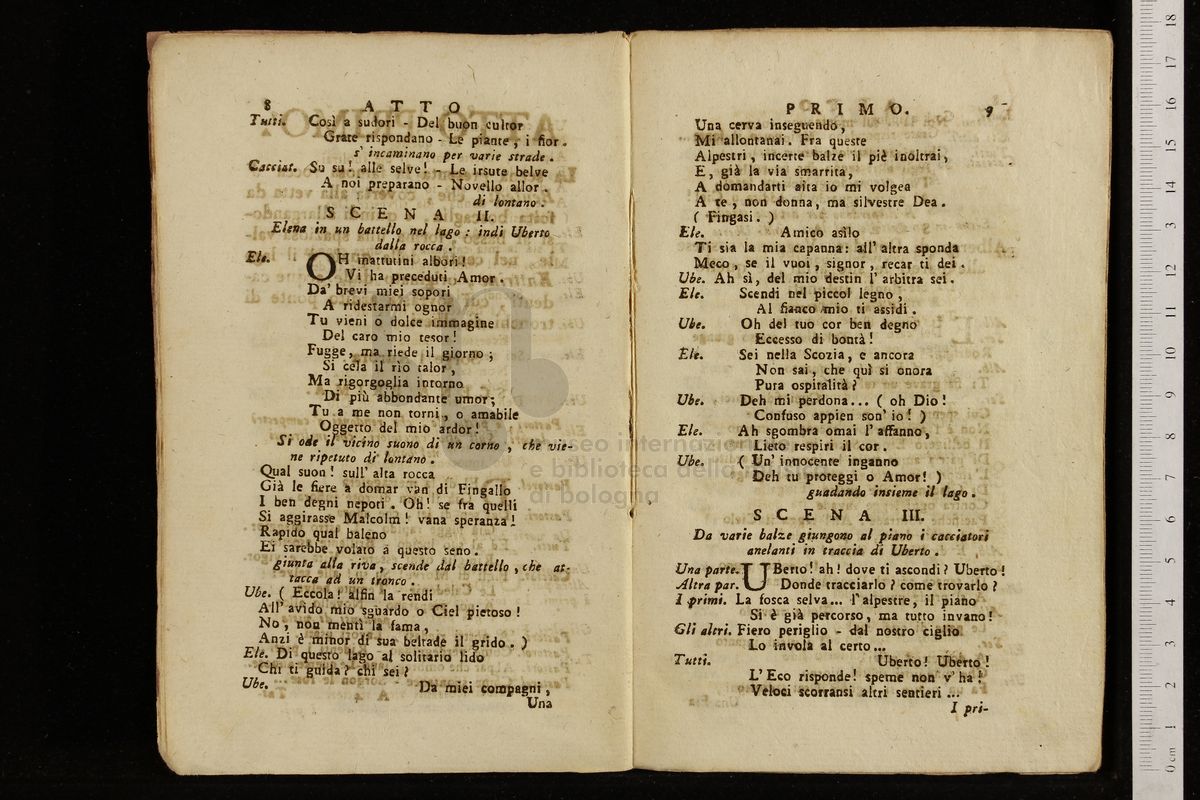 8 ATTO
Tutti. Così a sudori - Del buon cultor
Grate rispondano - Le piante, i fior.
s' incaminano per varie strade.
Cacciat. Su su! alle selve! - Le irsute belve
A noi preparano - Novello allor.
di lontano.
SCENA II.
Elena in un battello nel lago: indi Uberto
dalla rocca.
Ele. OH mattutini albori!
Vi ha preceduti Amor.
Da' brevi miei sopori
A ridestarmi ognor
Tu vieni o dolce immagine
Del caro mio tesor!
Fugge, ma riede il giorno;
Si cela il rio talor,
Ma rigorgoglia intorno
Di più abbondante umor;
Tu a me non torni, o amabile
Oggetto del mio ardor!
Si ode il vicino suono di un corno, che vie-
ne ripetuto di lontano.
Qual suon! sull' alta rocca
Già le fiere a domar van di Fingallo
I ben degni nepoti. Oh! se fra quelli
Si aggirasse Malcolm! vana speranza!
Rapido qual baleno
Ei sarebbe volato a questo seno.
giunta alla riva, scende dal battello, che at-
tacca ad un tronco.
Ube. ( Eccola! alfin la rendi
All' avido mio sguardo o Ciel pietoso!
No, non mentì la fama,
Anzi è minor di sua beltade il grido. )
Ele. Di questo lago al solitario lido
Chi ti guida? chi sei?
Ube. Da miei compagni,
Una
PRIMO. 9
Una cerva inseguendo,
Mi allontanai. Fra queste
Alpestri, incerte balze il piè inoltrai,
E, già la via smarrita,
A domandarti aita io mi volgea
A te, non donna, ma silvestre Dea.
( Fingasi. )
Ele. Amico asìlo
Ti sia la mia capanna: all' altra sponda
Meco, se il vuoi, signor, recar ti dei.
Ube. Ah sì, del mio destin l' arbitra sei.
Ele. Scendi nel piccol legno,
Al fianco mio ti assidi.
Ube. Oh del tuo cor ben degno
Eccesso di bontà!
Ele. Sei nella Scozia, e ancora
Non sai, che quì si onora
Pura ospitalità?
Ube. Deh mi perdona... ( oh Dio!
Confuso appien son' io! )
Ele. Ah sgombra omai l' affanno,
Lieto respiri il cor.
Ube. ( Un' innocente inganno
Deh tu proteggi o Amor! )
guadando insieme il lago.
SCENA III.
Da varie balze giungono al piano i cacciatori
anelanti in traccia di Uberto.
Una parte. UBerto! ah! dove ti ascondi? Uberto!
Altra par. Donde tracciarlo? come trovarlo?
I primi. La fosca selva... l' alpestre, il piano
Si è già percorso, ma tutto invano!
Gli altri. Fiero periglio - dal nostro ciglio
Lo invola al certo...
Tutti. Uberto! Uberto!
L' Eco risponde! speme non v' ha!
Veloci scorransi altri sentieri...
I pri-
museo internazionale
e biblioteca della
di bologna
0 cm 1 2 3 4 5 6 7 8 9 10 11 12 13 14 15 16 17 18